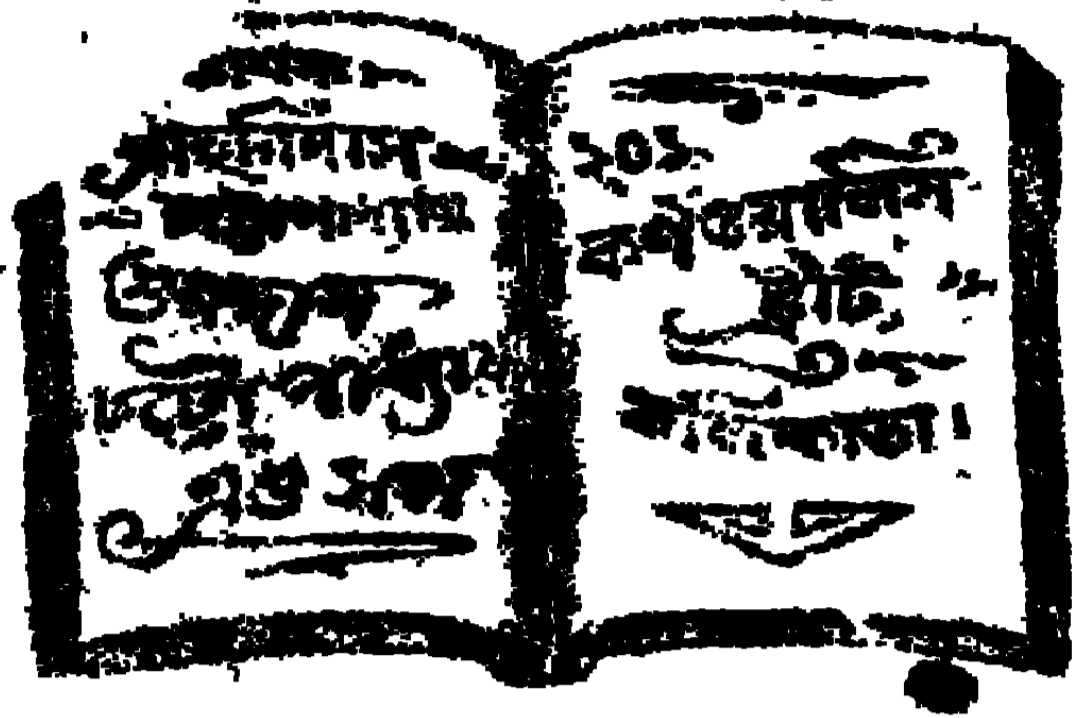 চট্টোপাধ্যায়
গুরুদাস
চট্টোপাধ্যায়
এণ্ড সন্স
২০১
কর্ণওয়ালিস
ষ্ট্রীট,
কলিকাতা।